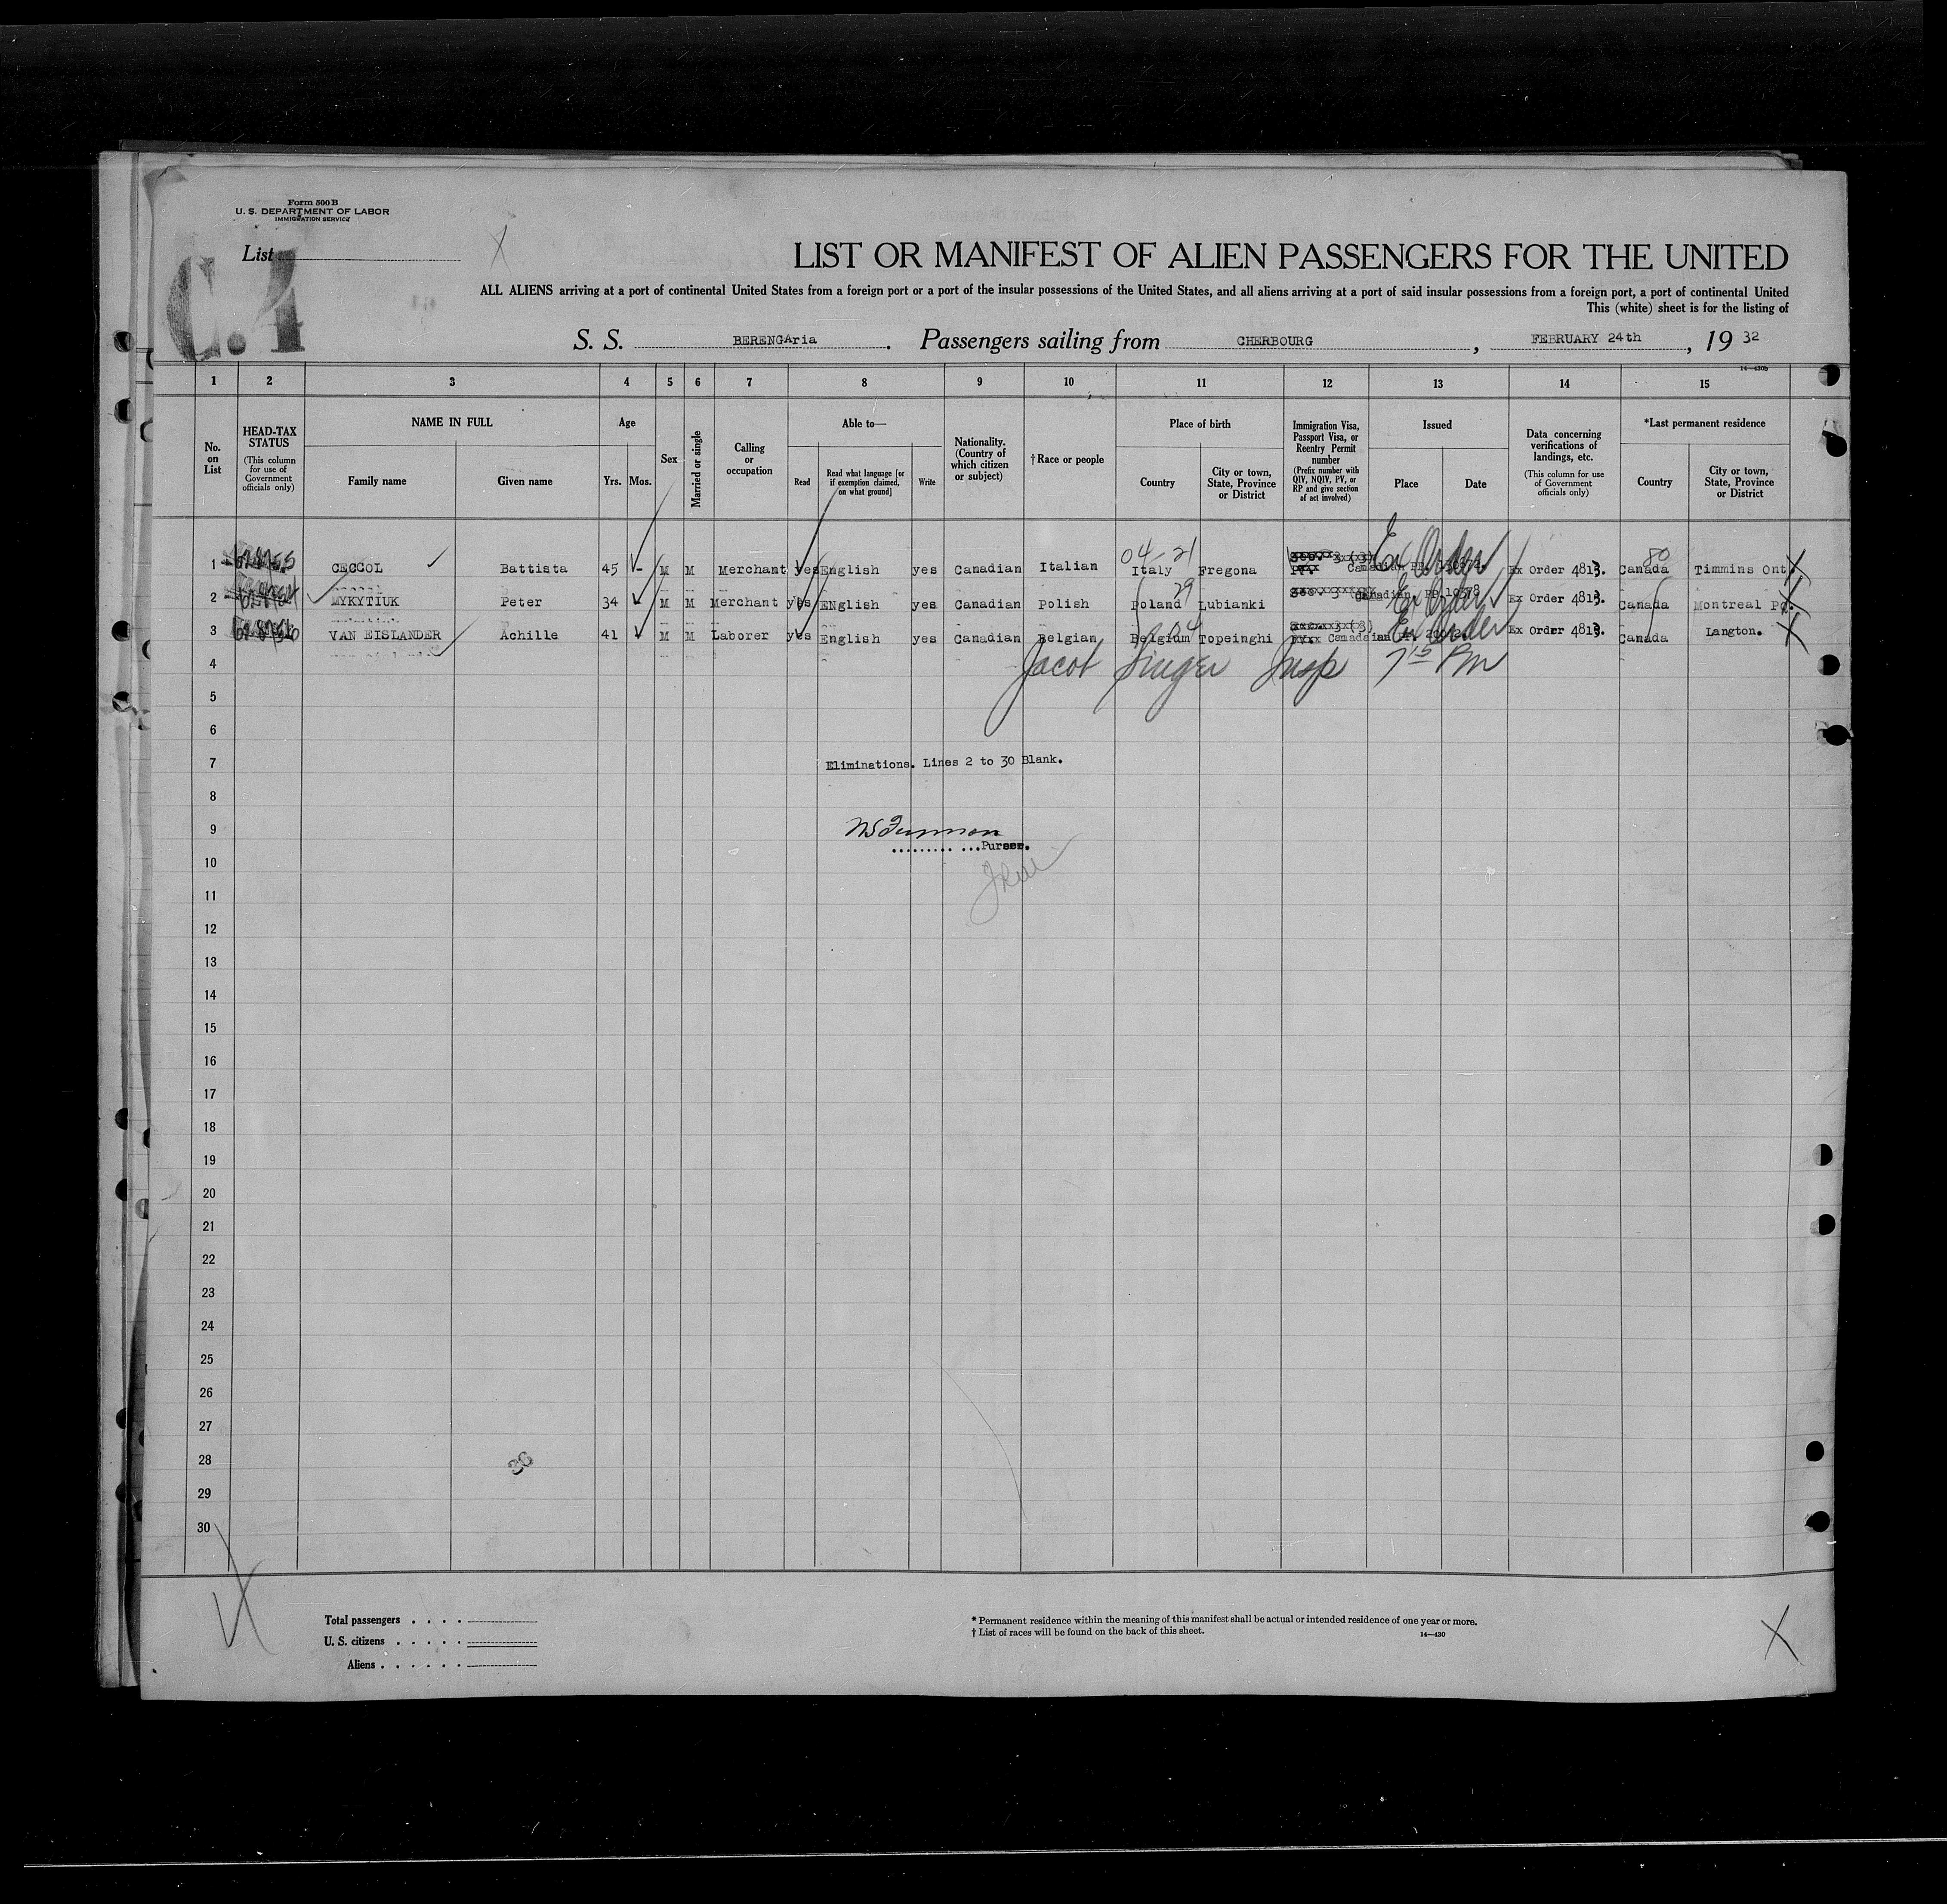 Form 500 B
U. S. DEPARTMENT OF LABOR
IMMIGRATION SERVICE
List
C. 4
LIST OR MANIFEST OF ALIEN PASSENGERS FOR THE UNITED
ALL ALIENS arriving at a port of continental United States from a foreign port or a port of the insular possessions of the United States, and all aliens arriving at a port of said insular possessions from a foreign port, a port of continental United
This (white) sheet is for the listing of
S. S. BERENGAria. Passengers sailing from CHERBOURG, FEBRUARY 24th, 19 32
14—430b
1 2 3 4 5 6 7 8 9 10 11 12 13 14 15
No. on List
HEAD-TAX STATUS (This column for use of Government officials only)
NAME IN FULL
Family name Given name
Age
Yrs. Mos.
Sex
Married or single
Calling or occupation
Able to—
Read Read what language [or if exemption claimed, on what ground] Write
Nationality. (Country of which citizen or subject)
†Race or people
Place of birth
Country City or town, State, Province or District
Immigration Visa, Passport Visa, or Reentry Permit number (Prefix number with QIV, NQIV, PV, or RP and give section of act involved)
Issued
Place Date
Data concerning verifications of landings, etc. (This column for use of Government officials only)
*Last permanent residence
Country City or town, State, Province or District
04-21 Ex Order 80
1 CECCOL Battista 45 M M Merchant yes English yes Canadian Italian Italy Fregona Canadian Ex Order 4813. Canada Timmins Ont
29 Ex Order
2 MYKYTIUK Peter 34 M M Merchant yes ENglish yes Canadian Polish Poland Lubianki Canadian PP 10578 Ex Order 4813. Canada Montreal PQ.
04 Ex Order
3 VAN EISLANDER Achille 41 M M Laborer yes English yes Canadian Belgian Belgium Topeinghi Canadian Ex Order 4813. Canada Langton.
4 Jacob Singer Insp 7 15 PM
5
6
7 Eliminations. Lines 2 to 30 Blank.
8
9
10 Purser.
11
12
13
14
15
16
17
18
19
20
21
22
23
24
25
26
27
28 36
29
30
Total passengers
U. S. citizens
Aliens
* Permanent residence within the meaning of this manifest shall be actual or intended residence of one year or more.
† List of races will be found on the back of this sheet.
14—430